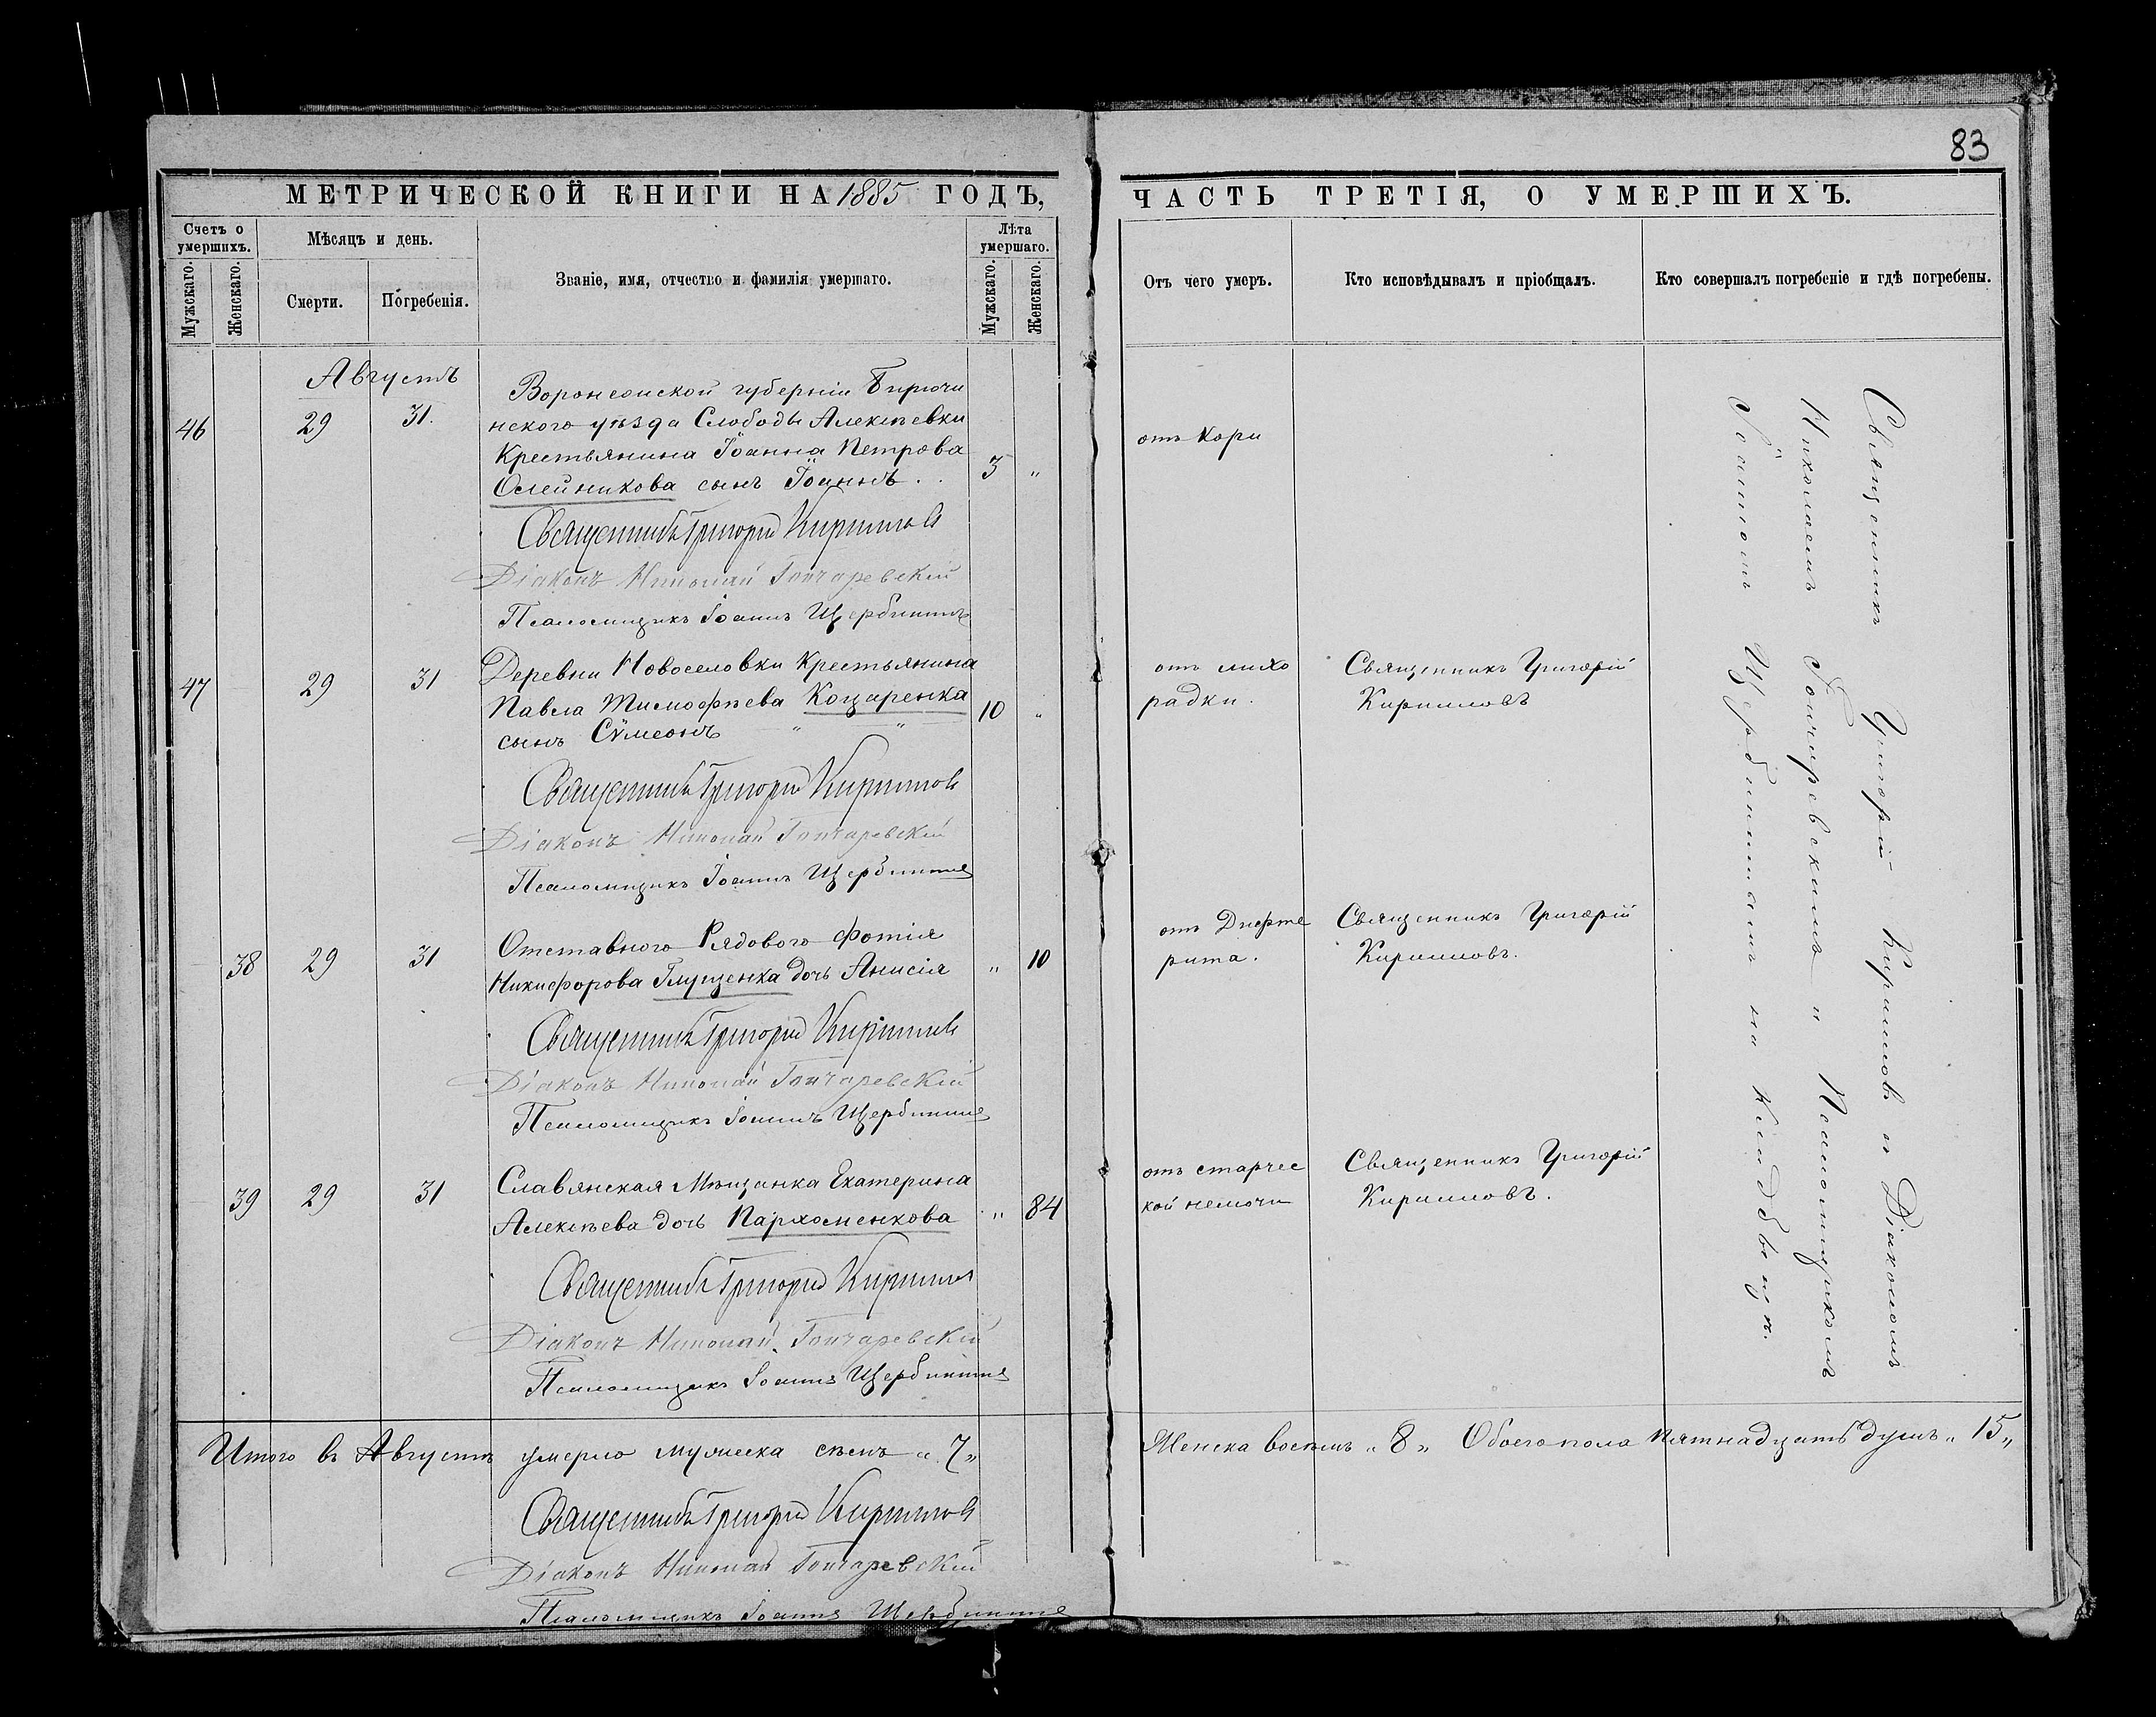 83
МЕТРИЧЕСКОЙ КНИГИ НА 1885 ГОДЪ,
Счетъ о умершихъ.
Мужскаго.
Женскаго.
Мѣсяцъ и день.
Смерти.
Погребенія.
Званіе, имя, отчество и фамилія умершаго.
Лѣта умершаго.
Мужскаго.
Женскаго.
Августъ
46 29 31.
Воронежской губерніи Бирючи
нского уѣзда Слободы Алексѣевки
Крестьянина Іоанна Петрова
Олейникова сынъ Іоаннъ . . 3 "
Священникъ Григорій Кирилловъ
Діаконъ Николай Гончаревскій
Псаломщикъ Іоаннъ Щербининъ
47 29 31
Деревни Новоселовки Крестьянина
Павла Тимофѣева Коцаренка 10 "
сынъ Сѵмеонъ " "
Священникъ Григорій Кирилловъ
Діаконъ Николай Гончаревскій
Псаломщикъ Іоаннъ Щербининъ
38 29 31
Отставного Рядового Фотія
Никифорова Глущенка дочь Анисія " 10
Священникъ Григорій Кирилловъ
Діаконъ Николай Гончаревскій
Псаломщикъ Іоаннъ Щербининъ
39 29 31
Славянская Мѣщанка Екатерина
Алексѣева дочь Пархоменкова " 84
Священникъ Григорій Кирилловъ
Діаконъ Николай Гончаревскій
Псаломщикъ Іоаннъ Щербининъ
Итого въ Августѣ умерло мужеска семь " 7 "
Священникъ Григорій Кирилловъ
Діаконъ Николай Гончаревскій
Псаломщикъ Іоаннъ Щербининъ
ЧАСТЬ ТРЕТІЯ, О УМЕРШИХЪ.
Отъ чего умеръ.
Кто исповѣдывалъ и пріобщалъ.
Кто совершалъ погребеніе и гдѣ погребены.
отъ Кори
отъ лихо
радки.
Священникъ Григорій
Кирилловъ
отъ Дифте
рита.
Священникъ Григорій
Кирилловъ.
отъ старчес
кой немочи
Священникъ Григорій
Кирилловъ.
Священникъ Григорій Кирилловъ съ Діакономъ
Николаемъ Гончаревскимъ и Псаломщикомъ
Іоанномъ Щербининымъ на Кладбищѣ.
Женска восемь " 8 " Обоего пола пятнадцать душъ " 15 "